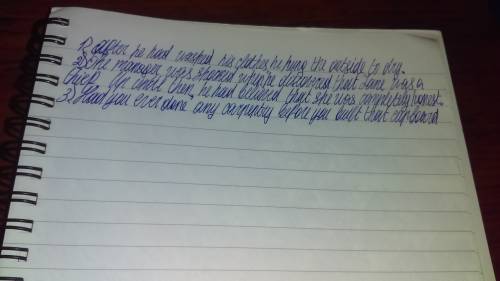 1) After he had washed his clothes he hung the outside to dry.
2) The manager was shocked when he discovered that Jane was a
thief. Up until then, he had believed that she was completely honest.
3) Had you ever done any carpentry before you built that cupboard